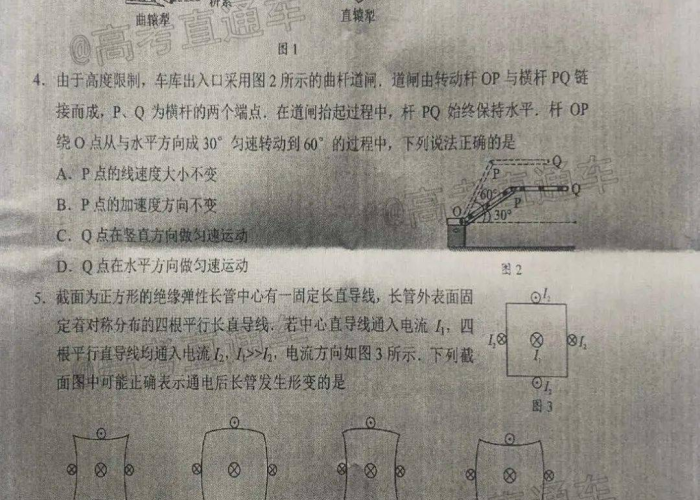 曲辕犁
直辕犁
图1
4. 由于高度限制，车库出入口采用图2所示的曲杆道闸．道闸由转动杆OP与横杆PQ链
接而成，P、Q为横杆的两个端点．在道闸抬起过程中，杆PQ始终保持水平．杆OP
绕O点从与水平方向成30°匀速转动到60°的过程中，下列说法正确的是
A．P点的线速度大小不变
B．P点的加速度方向不变
C．Q点在竖直方向做匀速运动
D．Q点在水平方向做匀速运动
P
Q
60°
Q
P
O
30°
图2
5. 截面为正方形的绝缘弹性长管中心有一固定长直导线，长管外表面固
定着对称分布的四根平行长直导线．若中心直导线通入电流I₁，四
根平行直导线均通入电流I₂，I₁>>I₂，电流方向如图3所示．下列截
面图中可能正确表示通电后长管发生形变的是
I₂
I₂
I₁
I₂
I₂
图3
@高考直通车
@高考直通车